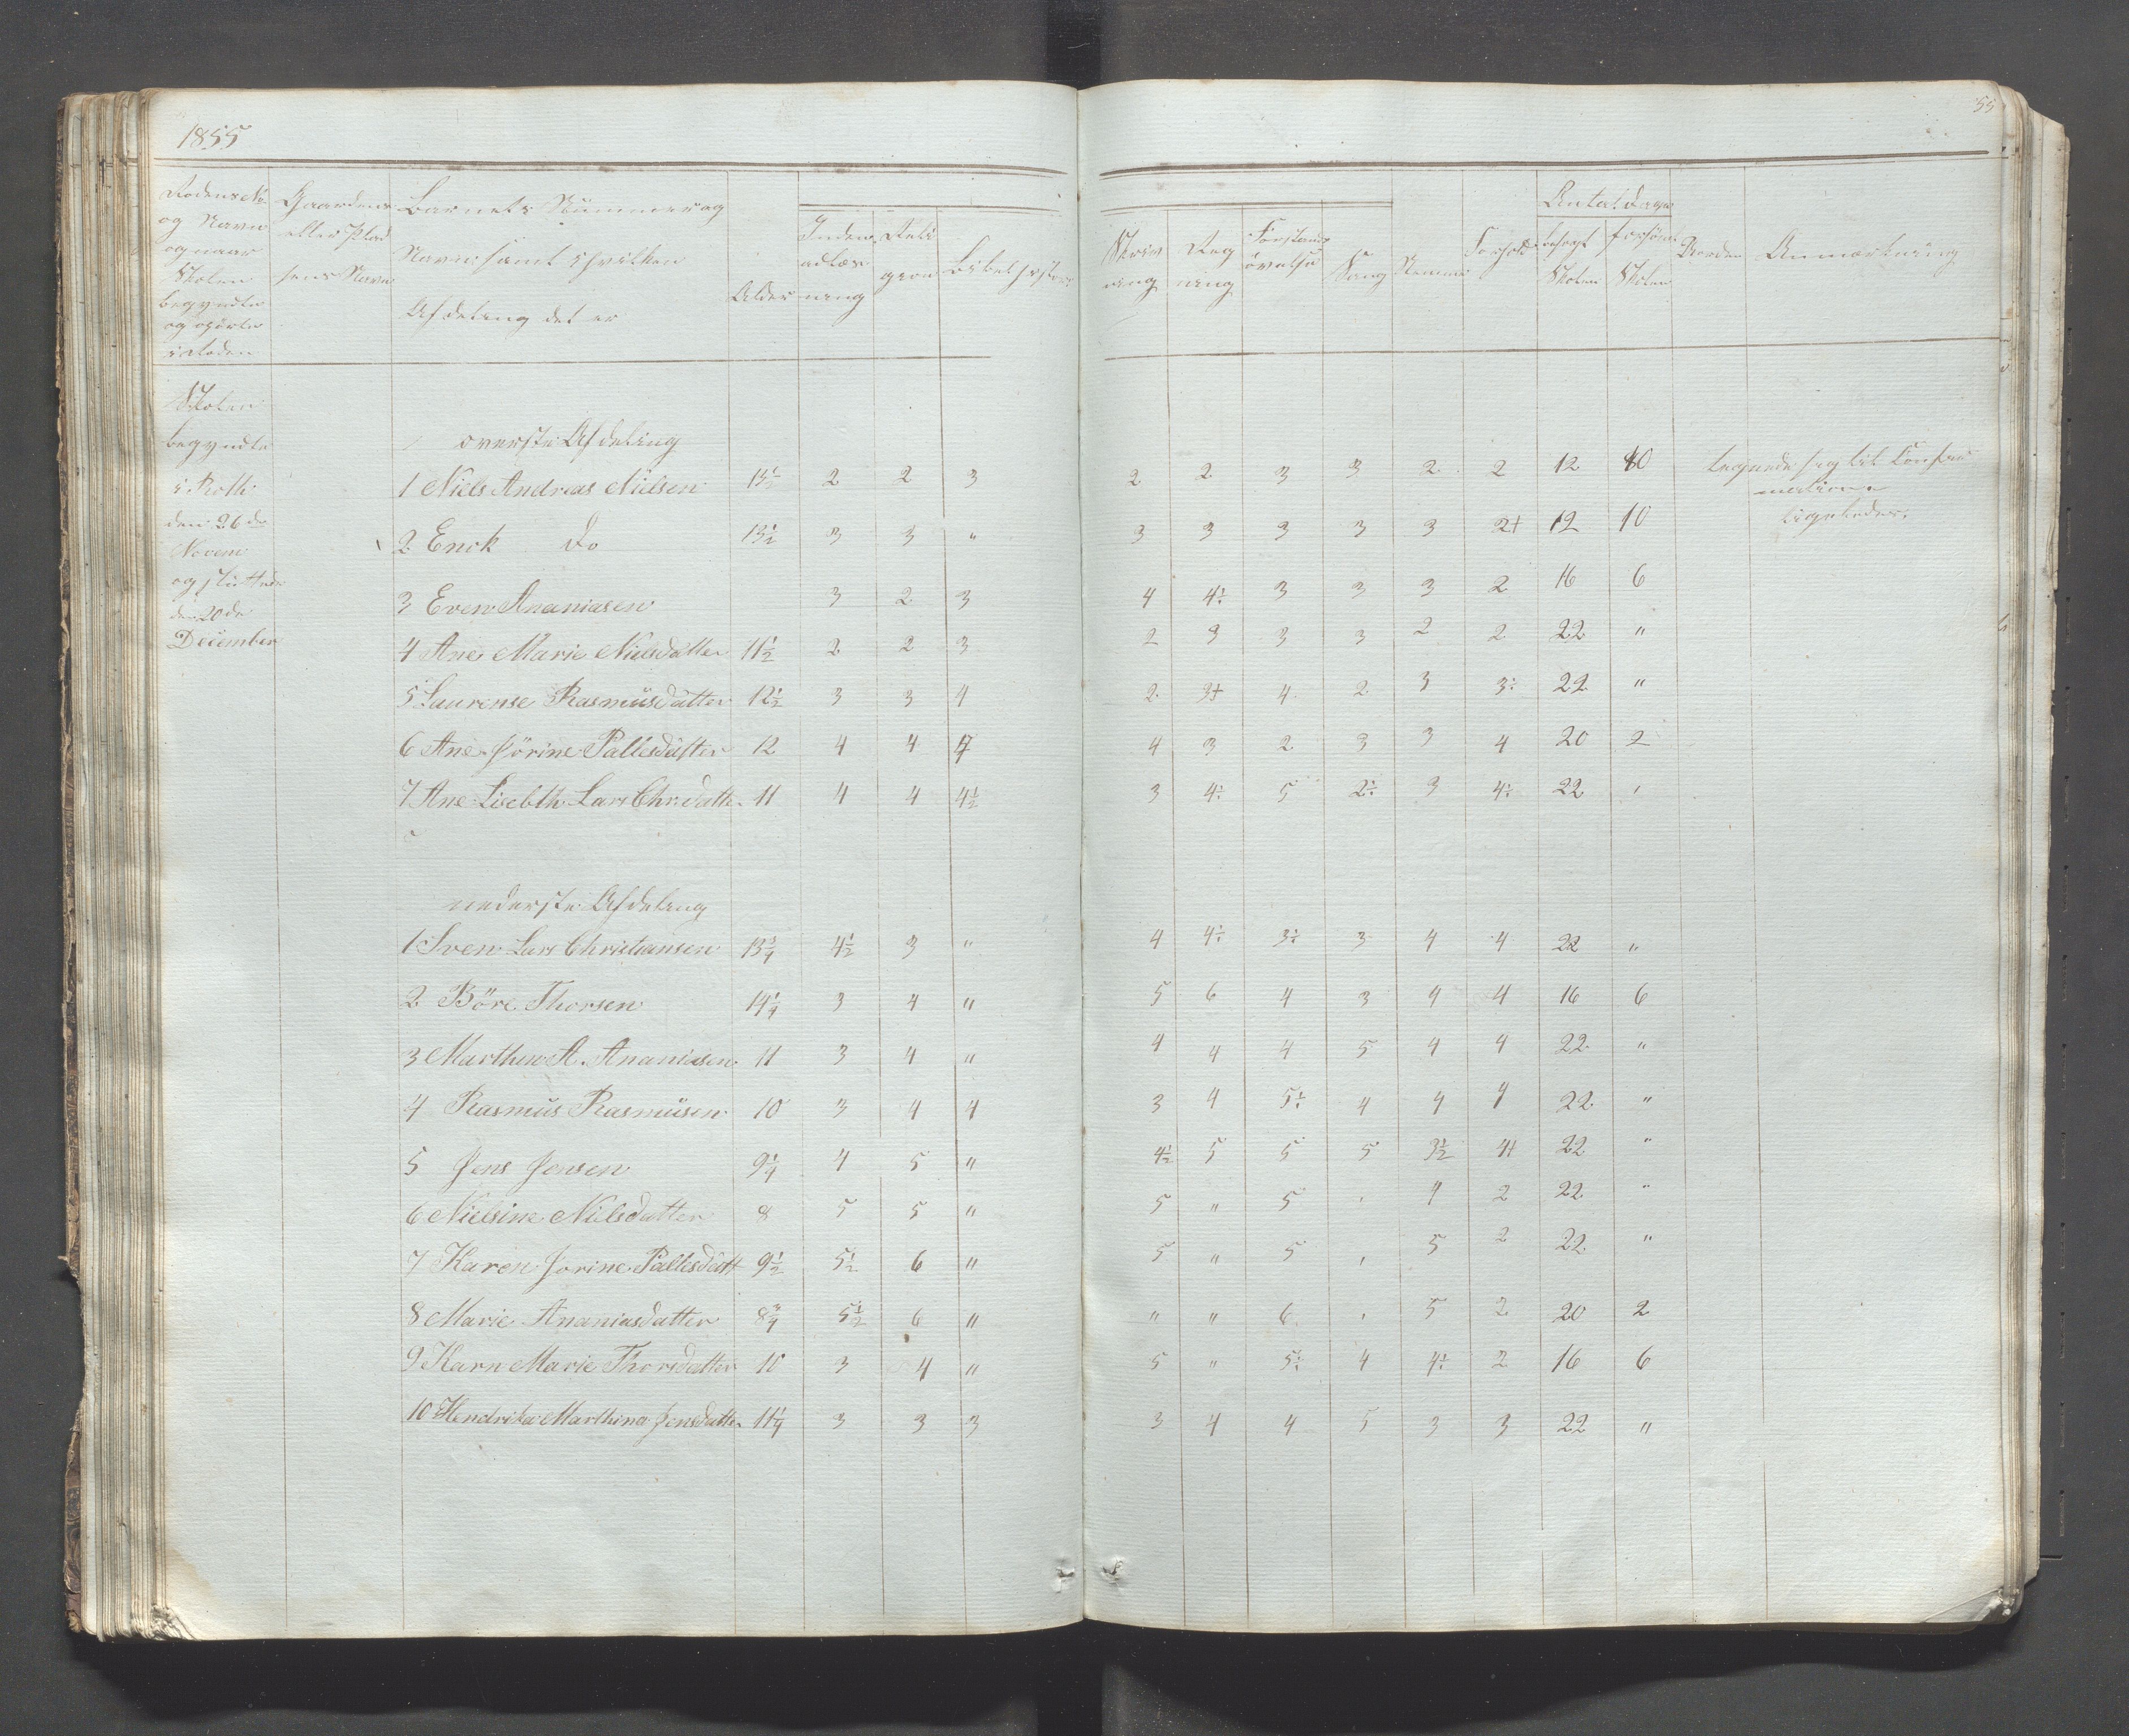 1855
55
Rodens No
og Navn
og naar
Skolen
begyndte
og ophørte
i Roden
Gaardens
eller Plad
sens Navn
Barnets Nummer og
Navn samt i hvilken
Afdeling det er
Alder
Inden
adlæs
ning
Reli
gion
Bibelhistorie
Skriv
ning
Reg
ning
Forstands
øvelse
Sang
Nemme
Forhold
Antal Dage
besøgt
Skolen
forsømt
Skolen
Anmærkning
Skolen
begyndte
i Roth
den 26de
Novem
og sluttede
den 20de
December
overste Afdeling
1 Niels Andreas Nielsen 2 2 3 2 2 3 3 2 2 12 10 tegnede sig til Confir
mation
2 Enok do 13½ 3 3 " 3 3 3 3 3 2+ 12 10 ligeledes.
3 Even Ananiasen 3 2 3 4 4÷ 3 3 3 2 16 6
4 Ane Marie Nielsdatter 11½ 2 2 3 2 3 3 3 2 2 22 "
5 Laurense Rasmusdatter 12½ 3 3 4 2 3+ 4 2 3 3÷ 22 "
6 Ane Jörine Pallesdatter 12 4 4 4 4 3 2 3 3 4 20 2
7 Ane Lisebth Lars Chr.datter 11 4 4 4½ 3 4÷ 5 2÷ 3 4÷ 22 "
nederste Afdeling
1 Sven Lars Christiansen 13¾ 4½ 3 " 4 4÷ 3÷ 3 4 4 22 "
2 Böre Thorsen 14¼ 3 4 " 5 6 4 3 4 4 16 6
3 Marthin A. Ananiasen 11 3 4 " 4 4 4 5 4 4 22 "
4 Rasmus Rasmusen 10 3 4 4 3 4 5÷ 4 4 4 22 "
5 Jens Jensen 9¼ 4 5 " 4½ 5 5 5 3½ 4+ 22 "
6 Nielsine Nilsdatter 8 5 5 " 5 " 5 " 4 2 22 "
7 Karen Jorine Pallesdatt 9½ 5½ 6 " 5 " 5 " 5 2 22 "
8 Marie Ananiasdatter 8¾ 5½ 6 " " " 6 " 5 2 20 2
9 Karn Marie Thorsdatter 10 3 4 " 5 " 5÷ 4 4÷ 2 16 6
10 Hendrika Marthina Jensdatter 11¼ 3 3 3 3 4 4 5 3 3 22 "